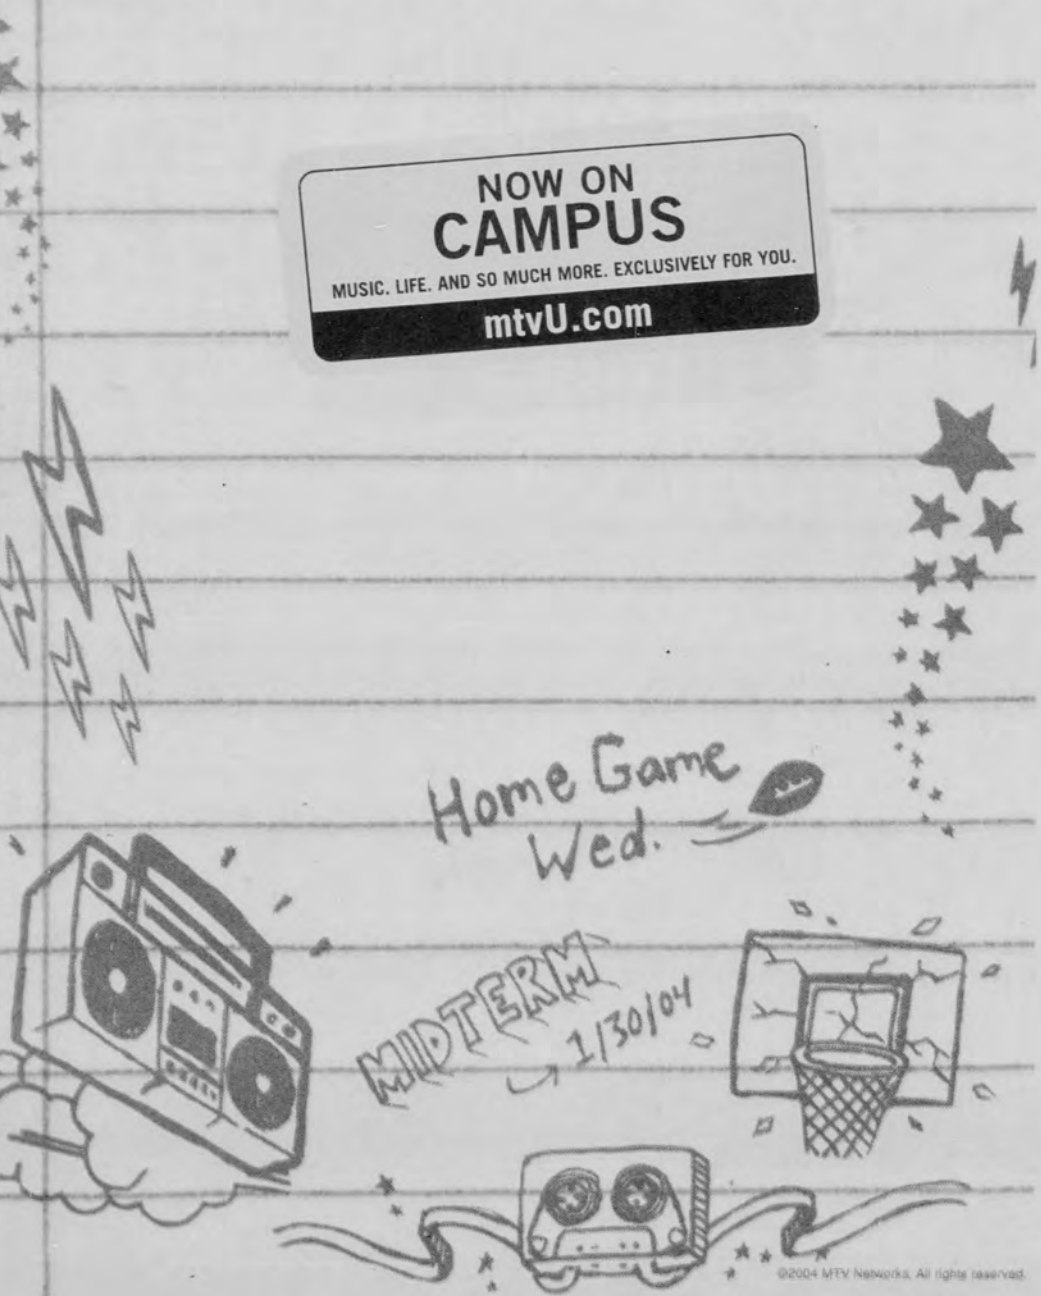 NOW ON
CAMPUS
MUSIC. LIFE. AND SO MUCH MORE. EXCLUSIVELY FOR YOU.
mtvU.com
Home Game
Wed.
MIDTERM
1/30/04
©2004 MTV Networks. All rights reserved.